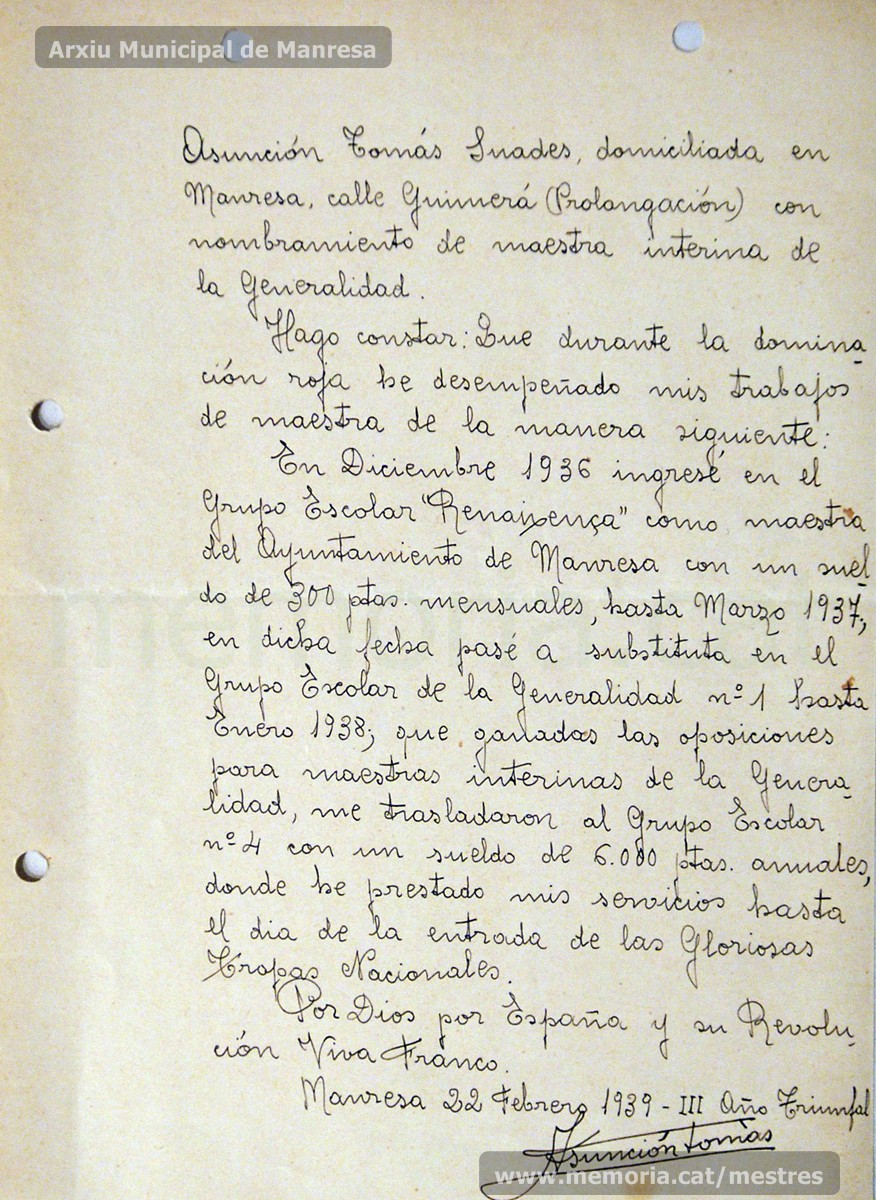 Arxiu Municipal de Manresa
Asunción Tomás Suades, domiciliada en
Manresa, calle Guimerá (Prolangación) con
nombramiento de maestra interina de
la Generalidad.
Hago constar: Que durante la domina-
ción roja he desempeñado mis trabajos
de maestra de la manera siguiente:
En Diciembre 1936 ingresé en el
Grupo Escolar "Renaixença" como maestra
del Ayuntamiento de Manresa con un suel-
do de 300 ptas. mensuales, hasta Marzo 1937;
en dicha fecha pasé a substituta en el
Grupo Escolar de la Generalidad nº 1 hasta
Enero 1938; que ganadas las oposiciones
para maestras interinas de la Genera-
lidad, me trasladaron al Grupo Escolar
nº 4 con un sueldo de 6.000 ptas. anuales,
donde he prestado mis servicios hasta
el dia de la entrada de las Gloriosas
Tropas Nacionales.
Por Dios por España y su Revolu-
ción Viva Franco.
Manresa 22 Febrero 1939 - III Año Triunfal
Asunción Tomás
www.memoria.cat/mestres